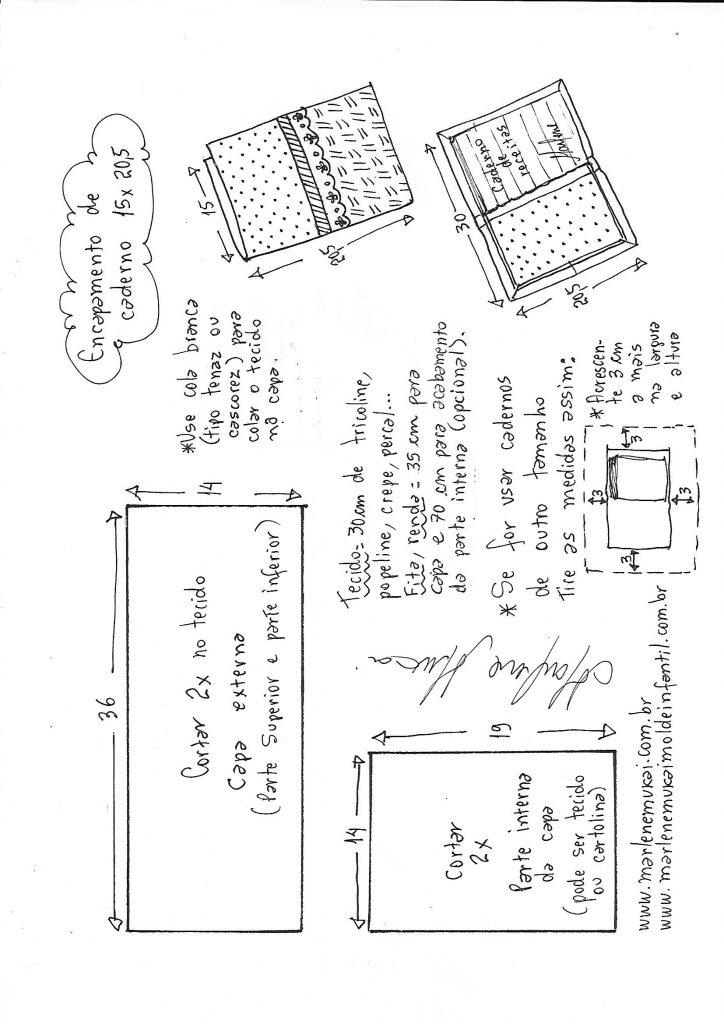 Encapamento de
caderno 15x20,5
15
20,5
*Use cola branca
(tipo tenaz ou
cascorez) para
colar o tecido
na capa.
36
14
Cortar 2x no tecido
Capa externa
(Parte Superior e parte inferior)
Tecido = 30cm de tricoline,
popeline, crepe, percal...
Fita, renda = 35 cm para
capa e 70 cm para acabamento
da parte interna (opcional).
30
20,5
Caderno
de
receitas
*Se for usar cadernos
de outro tamanho
Tire as medidas assim:
3
3
3
3
*Acrescen-
te 3 cm
a mais
na largura
e altura
14
19
Cortar
2x
Parte interna
da capa
(pode ser tecido
ou cartolina)
www.marlenemukai.com.br
www.marlenemukaimoldeinfantil.com.br